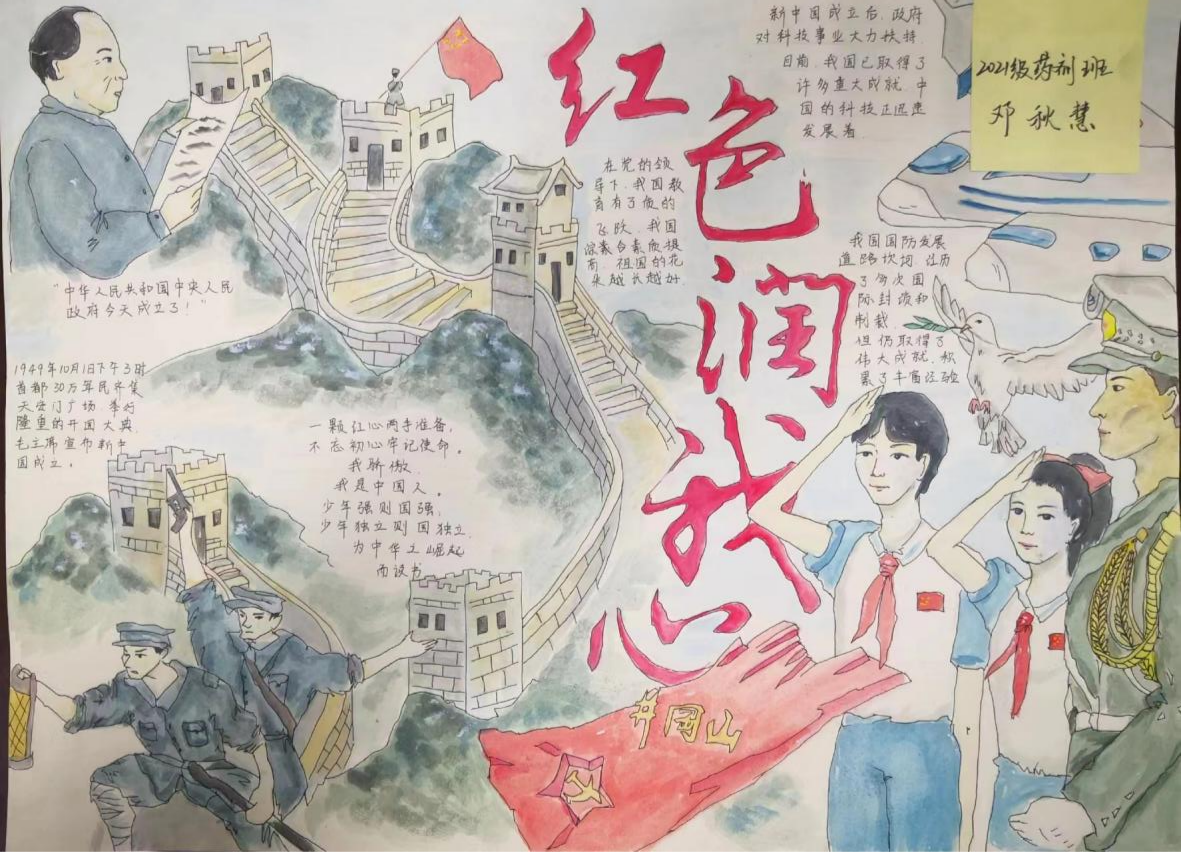 红色润我心
新中国成立后，政府
对科技事业大力扶持.
目前，我国已取得了
许多重大成就，中
国的科技正迅速
发展着.
2021级药剂班
邓秋慧
在党的领
导下，我国教
育有了质的
飞跃，我国
综素合素质提
高，祖国的花
朵越长越好.
我国国防发展
道路坎坷，经历
了多次国
际封锁和
制裁，
但仍取得了
伟大成就，积
累了丰富经验
“中华人民共和国中央人民
政府今天成立了！”
1949年10月1日下午3时
首都30万军民齐集
天安门广场，举行
隆重的开国大典.
毛主席宣布新中
国成立。
一颗红心两手准备，
不忘初心牢记使命。
我骄傲，
我是中国人。
少年强则国强，
少年独立则国独立.
为中华之崛起
而读书
井冈山